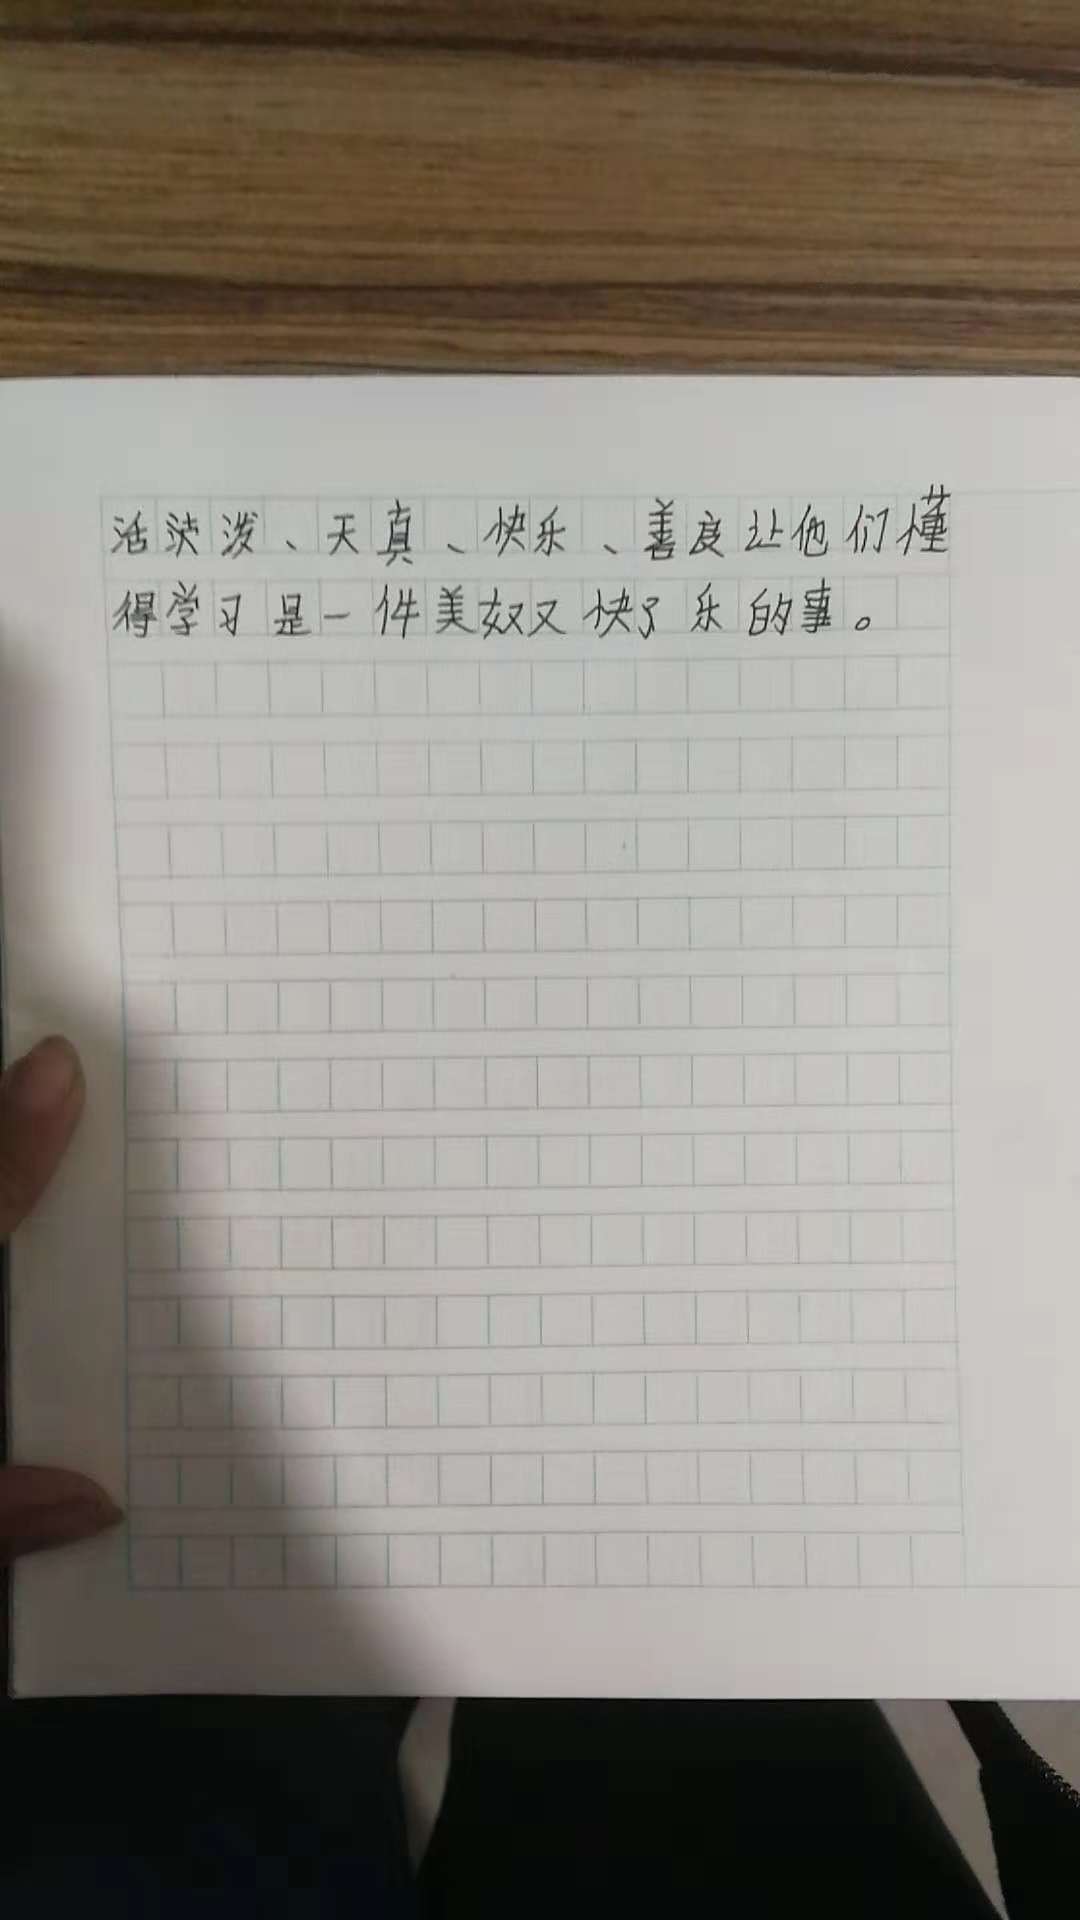 活泼泼、天真、快乐、善良让他们懂
得学习是一件美好又快了乐的事。